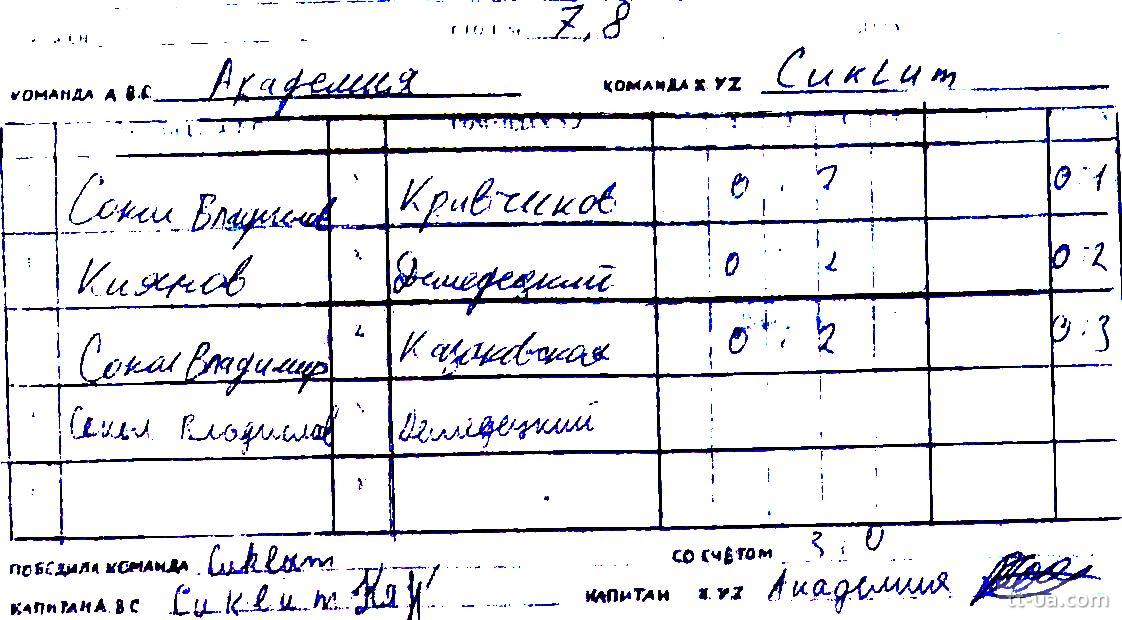 7,8
КОМАНДА А В.С Академия КОМАНДА X.YZ Сиквит
Сокол Владислав Кривчиков 0 : 2 0:1
Киянов Демедецкий 0 2 0:2
Сокол Владимир Казаковская 0 : 2 0:3
Сокол Владислав Демедецкий
ПОБЕДИЛА КОМАНДА Сиквит СО СЧЕТОМ 3 : 0
КАПИТАН А В С Сиквит КАПИТАН X.Y.Z Академия
tt-ua.com